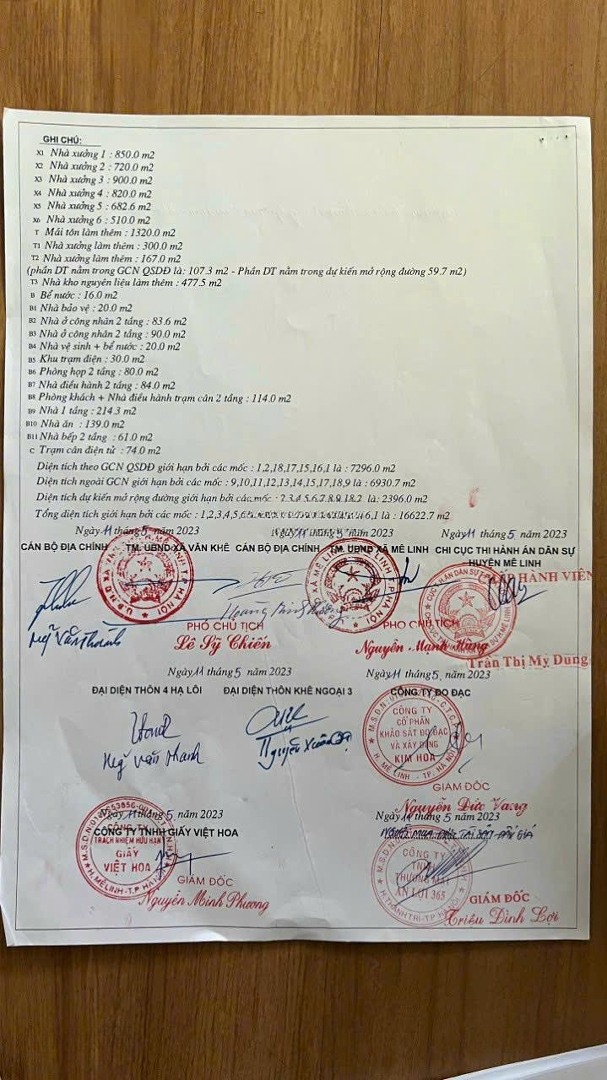 GHI CHÚ:
X1 Nhà xưởng 1 : 850.0 m2
X2 Nhà xưởng 2 : 720.0 m2
X3 Nhà xưởng 3 : 900.0 m2
X4 Nhà xưởng 4 : 820.0 m2
X5 Nhà xưởng 5 : 682.6 m2
X6 Nhà xưởng 6 : 510.0 m2
T Mái tôn làm thêm : 1320.0 m2
T1 Nhà xưởng làm thêm : 300.0 m2
T2 Nhà xưởng làm thêm : 167.0 m2
(phần DT nằm trong GCN QSDĐ là: 107.3 m2 - Phần DT nằm trong dự kiến mở rộng đường 59.7 m2)
T3 Nhà kho nguyên liệu làm thêm : 477.5 m2
B Bể nước : 16.0 m2
B1 Nhà bảo vệ : 20.0 m2
B2 Nhà ở công nhân 2 tầng : 83.6 m2
B3 Nhà ở công nhân 2 tầng : 90.0 m2
B4 Nhà vệ sinh + bể nước : 20.0 m2
B5 Khu trạm điện : 30.0 m2
B6 Phòng họp 2 tầng : 80.0 m2
B7 Nhà điều hành 2 tầng : 84.0 m2
B8 Phòng khách + Nhà điều hành trạm cân 2 tầng : 114.0 m2
B9 Nhà 1 tầng : 214.3 m2
B10 Nhà ăn : 139.0 m2
B11 Nhà bếp 2 tầng : 61.0 m2
C Trạm cân điện tử : 74.0 m2
Diện tích theo GCN QSDĐ giới hạn bởi các mốc : 1,2,18,17,15,16,1 là : 7296.0 m2
Diện tích ngoài GCN giới hạn bởi các mốc : 9,10,11,12,13,14,15,17,18,9 là : 6930.7 m2
Diện tích dự kiến mở rộng đường giới hạn bởi các mốc : 2,3,4,5,6,7,8,9,18,2 là: 2396.0 m2
Tổng diện tích giới hạn bởi các mốc : 1,2,3,4,5,6,7,8,9,10,11,12,13,14,15,16,1 là : 16622.7 m2
Ngày 11 tháng 5 năm 2023 Ngày 11 tháng 5 năm 2023 Ngày 11 tháng 5 năm 2023
CÁN BỘ ĐỊA CHÍNH TM. UBND XÃ VĂN KHÊ CÁN BỘ ĐỊA CHÍNH TM. UBND XÃ MÊ LINH CHI CỤC THI HÀNH ÁN DÂN SỰ
HUYỆN MÊ LINH
CHẤP HÀNH VIÊN
PHÓ CHỦ TỊCH PHÓ CHỦ TỊCH
Lê Sỹ Chiến Nguyễn Mạnh Hùng
Trần Thị Mỵ Dung
Ngày 11 tháng 5 năm 2023 Ngày 11 tháng 5 năm 2023
ĐẠI DIỆN THÔN 4 HẠ LÔI ĐẠI DIỆN THÔN KHÊ NGOẠI 3 CÔNG TY ĐO ĐẠC
CÔNG TY
CỔ PHẦN
KHẢO SÁT ĐO ĐẠC
VÀ XÂY DỰNG
KIM HOA
H. MÊ LINH - TP. HÀ NỘI
Ngô Văn Thanh
GIÁM ĐỐC
Nguyễn Đức Vang
Ngày 11 tháng 5 năm 2023 Ngày 11 tháng 5 năm 2023
CÔNG TY TNHH GIẤY VIỆT HOA
CÔNG TY
TRÁCH NHIỆM HỮU HẠN
GIẤY
VIỆT HOA
CÔNG TY
TNHH
AN LỢI 365
GIÁM ĐỐC GIÁM ĐỐC
Nguyễn Minh Phương Triệu Đình Lợi